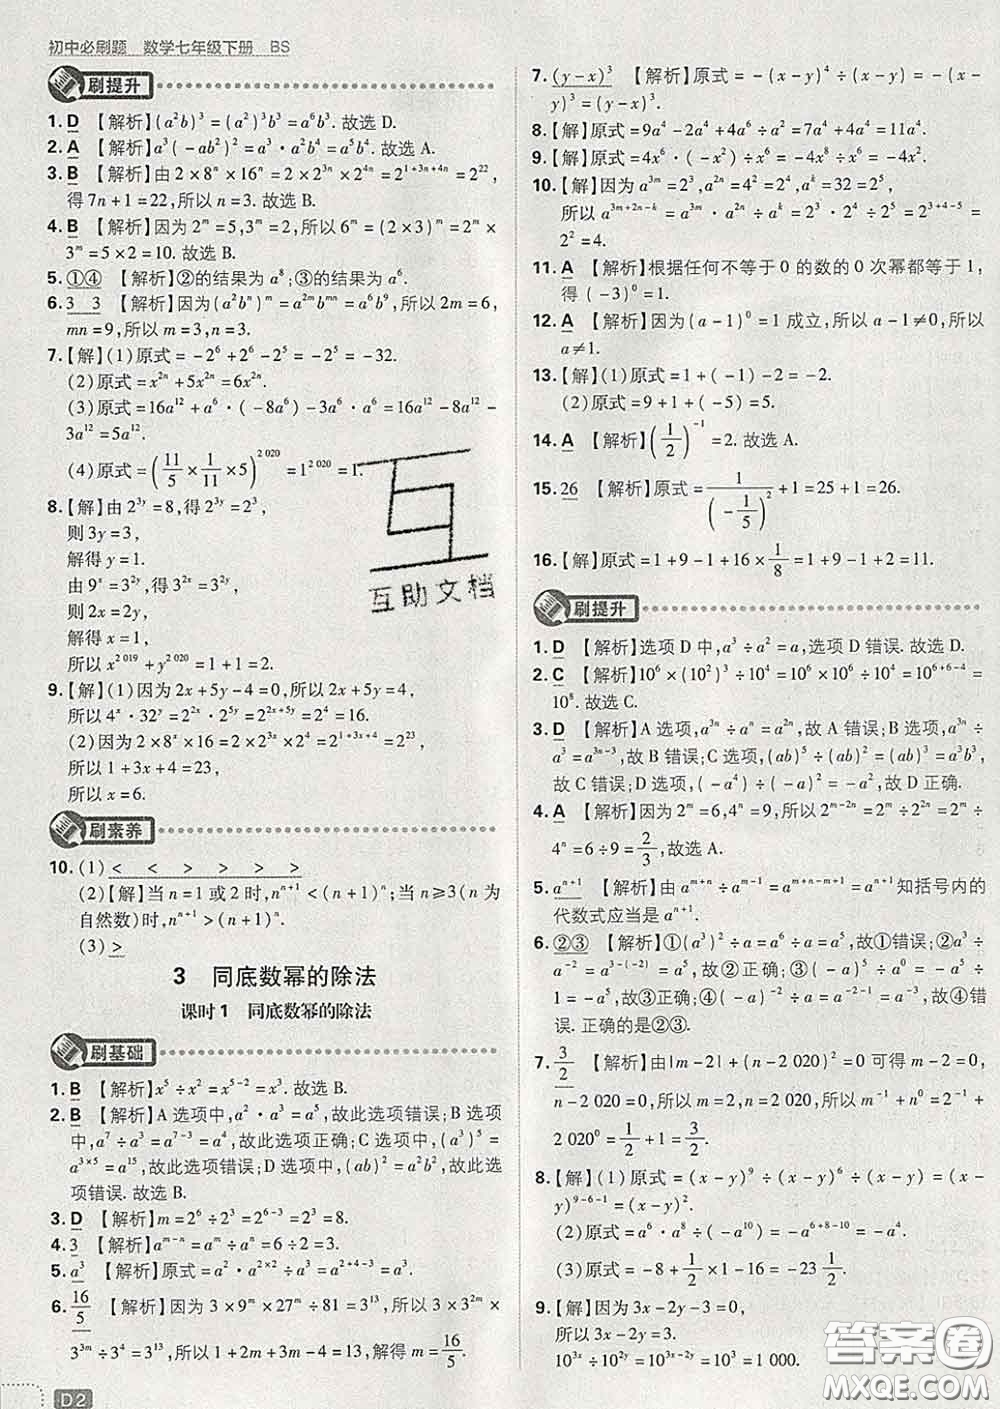 初中必刷题 数学七年级下册 BS
刷提升
1. D 【解析】(a²b)³=(a²)³b³=a⁶b³. 故选 D.
2. A 【解析】a³(-ab²)²=a³·a²b⁴=a⁵b⁴. 故选 A.
3. B 【解析】由 2×8ⁿ×16ⁿ=2×2³ⁿ×2⁴ⁿ=2¹⁺³ⁿ⁺⁴ⁿ=2²²,
得 7n+1=22,所以 n=3. 故选 B.
4. B 【解析】因为 2ᵐ=5,3ᵐ=2,所以 6ᵐ=(2×3)ᵐ=2ᵐ×
3ᵐ=5×2=10. 故选 B.
5. ①④ 【解析】②的结果为 a⁸;③的结果为 a⁶.
6. 3 3 【解析】因为(a²bⁿ)ᵐ=a²ᵐbᵐⁿ=a⁶b⁹,所以 2m=6,
mn=9,所以 m=3,n=3.
7.【解】(1)原式=-2⁶+2⁶-2⁵=-2⁵=-32.
(2)原式=x²ⁿ+5x²ⁿ=6x²ⁿ.
(3)原式=16a¹²+a⁶·(-8a⁶)-3a⁶·a⁶=16a¹²-8a¹²-
3a¹²=5a¹².
(4)原式=(11/5×1/11×5)²⁰²⁰=1²⁰²⁰=1.
8.【解】由 2³ʸ=8,得 2³ʸ=2³,
则 3y=3,
解得 y=1.
由 9ˣ=3²ʸ,得 3²ˣ=3²ʸ,
则 2x=2y,
解得 x=1.
所以 x²⁰¹⁹+y²⁰²⁰=1+1=2.
9.【解】(1)因为 2x+5y-4=0,所以 2x+5y=4,
所以 4ˣ·32ʸ=2²ˣ·2⁵ʸ=2²ˣ⁺⁵ʸ=2⁴=16.
(2)因为 2×8ˣ×16=2×2³ˣ×2⁴=2¹⁺³ˣ⁺⁴=2²³,
所以 1+3x+4=23,
所以 x=6.
刷素养
10. (1) < < > > > >
(2)【解】当 n=1 或 2 时,nⁿ⁺¹<(n+1)ⁿ;当 n≥3(n 为
自然数)时,nⁿ⁺¹>(n+1)ⁿ.
(3) >
3 同底数幂的除法
课时1 同底数幂的除法
刷基础
1. B 【解析】x⁵÷x²=x⁵⁻²=x³. 故选 B.
2. B 【解析】A 选项中,a²·a³=a⁵,故此选项错误;B 选项
中,a⁷÷a³=a⁷⁻³=a⁴,故此选项正确;C 选项中,(a³)⁵=
a³ˣ⁵=a¹⁵,故此选项错误;D 选项中,(ab)²=a²b²,故此选
项错误. 故选 B.
3. D 【解析】m=2⁶÷2³=2⁶⁻³=2³=8.
4. 3 【解析】aᵐ⁻ⁿ=aᵐ÷aⁿ=6÷2=3.
5. a³ 【解析】原式=a²·a²ˣ²÷a³=a²⁺⁴⁻³=a³.
6. 16/5 【解析】因为 3×9ᵐ×27ᵐ÷81=3¹³,所以 3×3²ᵐ×
3³ᵐ÷3⁴=3¹³,所以 1+2m+3m-4=13,解得 m=16/5.
7. (y-x)³ 【解析】原式=-(x-y)⁴÷(x-y)=-(x-
y)³=(y-x)³.
8.【解】原式=9a⁴-2a⁴+4a⁶÷a²=7a⁴+4a⁴=11a⁴.
9.【解】原式=4x⁶·(-x²)÷x⁶=-4x⁸÷x⁶=-4x².
10.【解】因为 a³ᵐ=2³,a²ⁿ=4²=2⁴,aᵏ=32=2⁵,
所以 a³ᵐ⁺²ⁿ⁻ᵏ=a³ᵐ·a²ⁿ÷aᵏ=2³·2⁴÷2⁵=2³⁺⁴⁻⁵=
2²=4.
11. A 【解析】根据任何不等于 0 的数的 0 次幂都等于 1,
得(-3)⁰=1.
12. A 【解析】因为(a-1)⁰=1 成立,所以 a-1≠0,所以
a≠1.
13.【解】(1)原式=1+(-1)-2=-2.
(2)原式=9+1+(-5)=5.
14. A 【解析】(1/2)⁻¹=2. 故选 A.
15. 26 【解析】原式=1/(-1/5)²+1=25+1=26.
16.【解】原式=1+9-1+16×1/8=1+9-1+2=11.
刷提升
1. D 【解析】选项 D 中,a³÷a²=a,选项 D 错误. 故选 D.
2. C 【解析】10⁶×(10²)³÷10⁴=10⁶×10⁶÷10⁴=10⁶⁺⁶⁻⁴=
10⁸. 故选 C.
3. D 【解析】A 选项,a³ⁿ÷aⁿ=a²ⁿ,故 A 错误;B 选项,a³ⁿ
÷a³=a³ⁿ⁻³,故 B 错误;C 选项,(ab)⁵÷(ab)²=(ab)³=a³b³,
故 C 错误;D 选项,(-a⁴)÷(-a)²=-a²,故 D 正确.
4. A 【解析】因为 2ᵐ=6,4ⁿ=9,所以 2ᵐ⁻²ⁿ=2ᵐ÷2²ⁿ=2ᵐ÷
4ⁿ=6÷9=2/3,故选 A.
5. aⁿ⁺¹ 【解析】由 aᵐ⁺ⁿ÷aᵐ⁻¹=aᵐ⁺ⁿ⁻ᵐ⁺¹=aⁿ⁺¹知括号内的
代数式应当是 aⁿ⁺¹.
6. ②③ 【解析】①(a³)²÷a=a⁶÷a=a⁵,故①错误;②a³÷
a⁻²=a³⁻⁽⁻²⁾=a⁵,故②正确;③-a⁸÷(-a)³=a⁸÷a³=
a⁵,故③正确;④(-a)⁻²÷a=a⁻²⁻¹=a⁻³,故④错
误. 正确的是②③.
7. 3/2 【解析】由|m-2|+(n-2 020)²=0 可得 m-2=0,
n-2 020=0,所以 m=2,n=2 020,所以 m⁻¹+n⁰=2⁻¹+
2 020⁰=1/2+1=3/2.
8.【解】(1)原式=(x-y)⁹÷(x-y)⁶÷(x-y)=(x-
y)⁹⁻⁶⁻¹=(x-y)².
(2)原式=a⁶·a⁸÷(-a¹⁰)=-a⁶⁺⁸⁻¹⁰=-a⁴.
(3)原式=-8+1/2×1-16=-23 1/2.
9.【解】因为 3x-2y-3=0,
所以 3x-2y=3,
10³ˣ÷10²ʸ=10³ˣ⁻²ʸ=10³=1 000.
D2
互助文档
答案圈
MXQE.COM